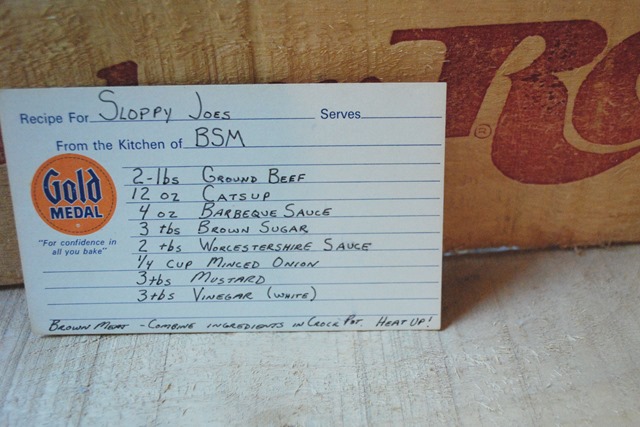 Recipe For SLOPPY JOES Serves
From the Kitchen of BSM
Gold
MEDAL
"For confidence in
all you bake"
2-lbs GROUND BEEF
12 oz CATSUP
4 oz BARBEQUE SAUCE
3 tbs BROWN SUGAR
2 tbs WORCESTERSHIRE SAUCE
1/4 CUP MINCED ONION
3 tbs MUSTARD
3 tbs VINEGAR (WHITE)
BROWN MEAT - COMBINE INGREDIENTS IN CROCK POT. HEAT UP!
®